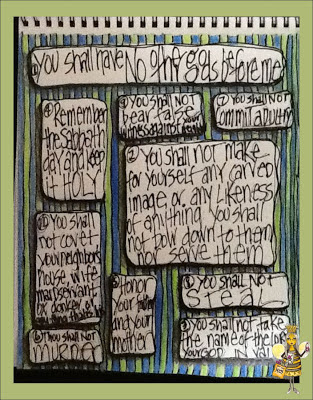 You shall have No other gods before me
④ Remember
the Sabbath
day and keep
it HOLY
You shall NOT
bear false
witness against
⑦ You shall NOT
commit adultry
② You shall not make
for Yourself any carved
image or any Likeness
of anything You shall
not bow down to them
nor serve them
You shall
not covet
your neighbor's
house, wife
manservant
ox donkey or
Honor
Your
and your
mother
You shall NOT
STEAL
③ You shall not take
the name of the LORD
YOUR GOD IN VAIN
Thou shall NOT
MURDER